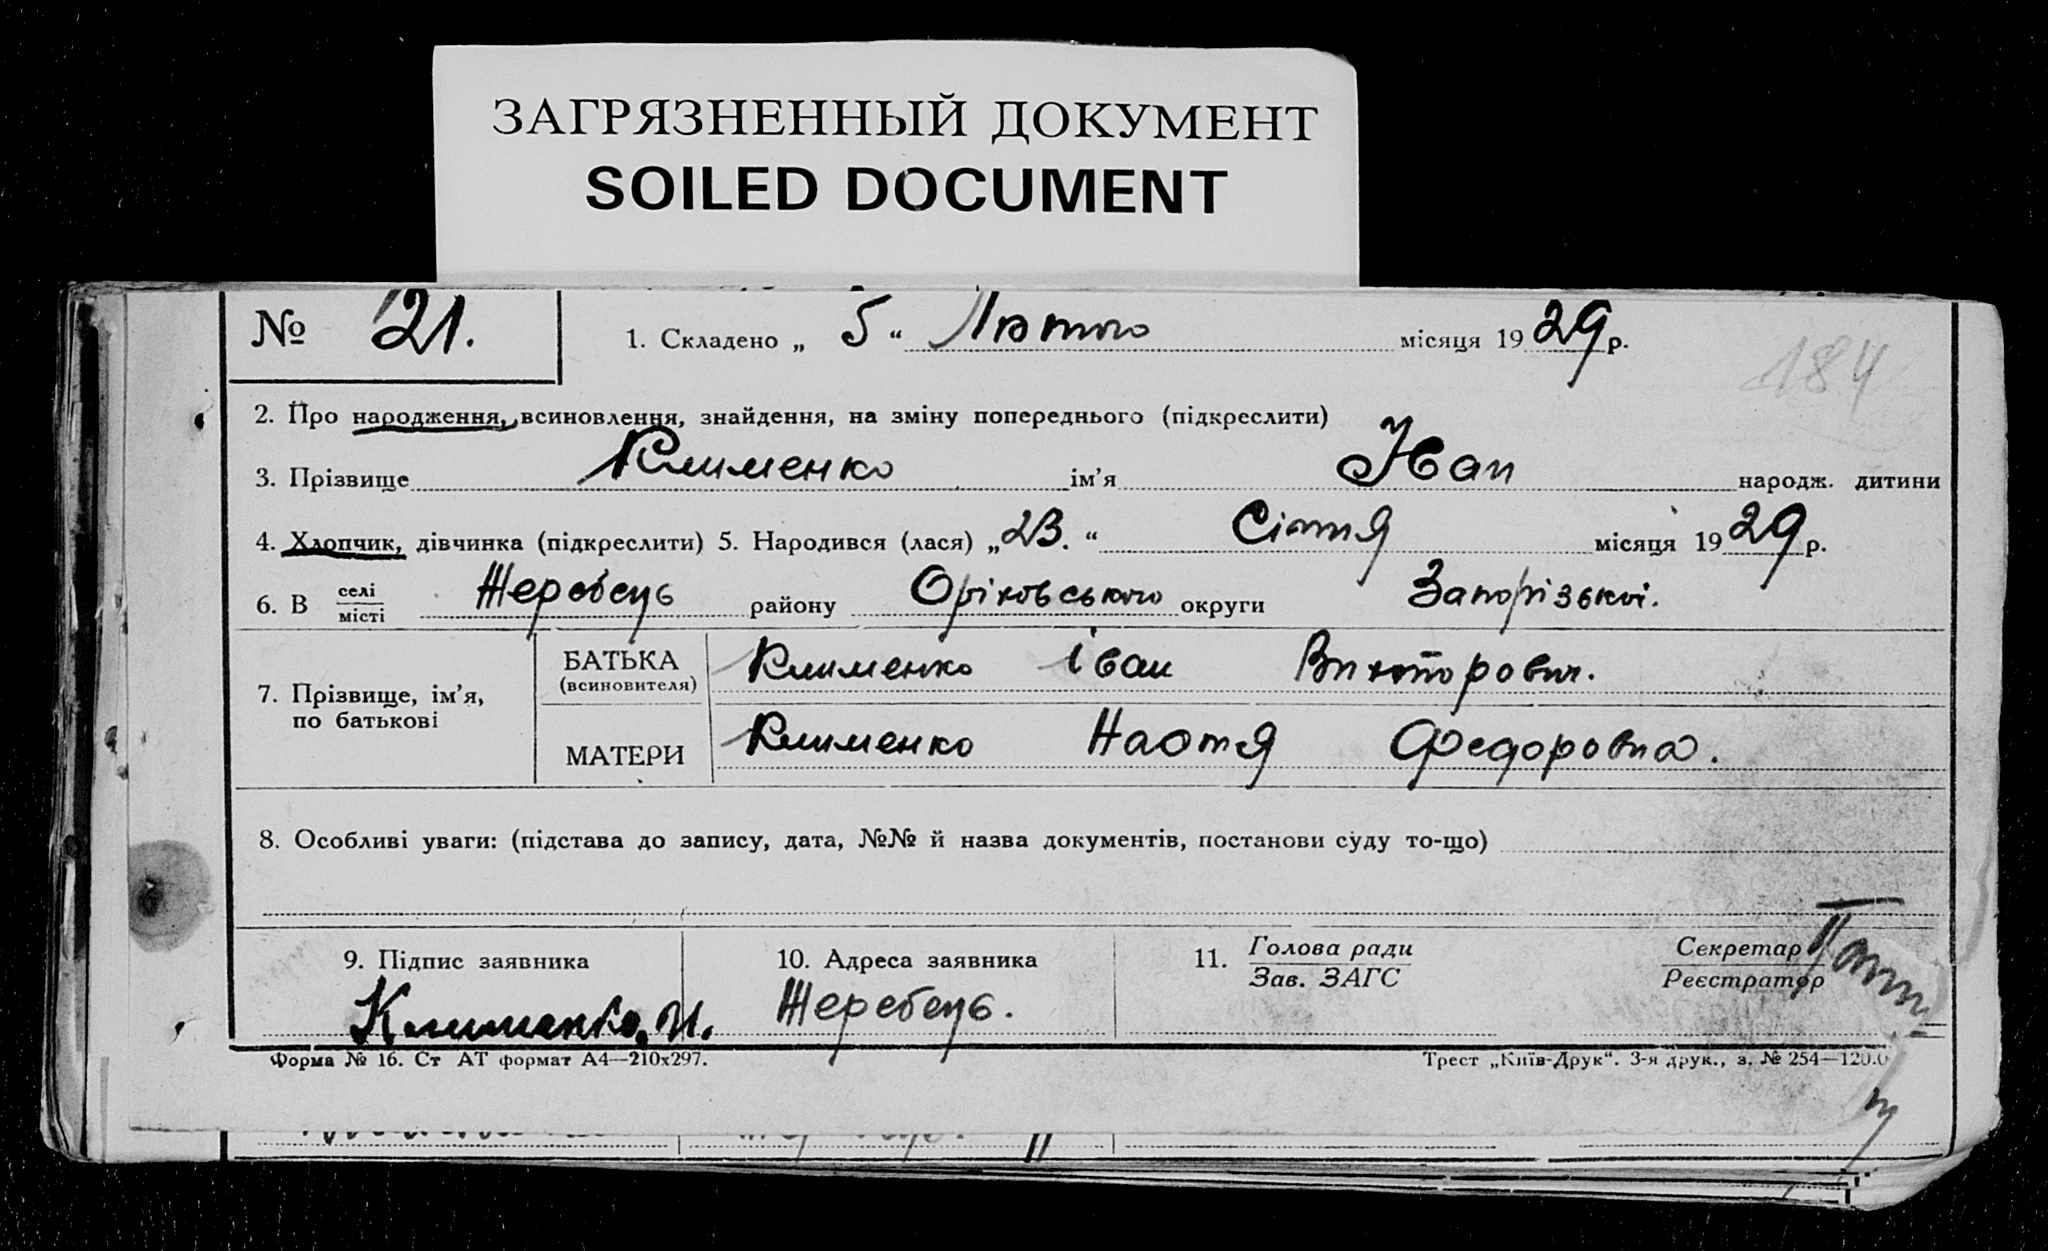 ЗАГРЯЗНЕННЫЙ ДОКУМЕНТ
SOILED DOCUMENT
№ 21. 1. Складено „ 5 “ Лютого місяця 1929 р.
184
2. Про народження, всиновлення, знайдення, на зміну попереднього (підкреслити)
3. Прізвище Клименко ім’я Іван народж. дитини
4. Хлопчик, дівчинка (підкреслити) 5. Народився (лася) „23.“ Січня місяця 1929 р.
6. В селі/місті Жеребець району Оріховського округи Запорізької.
7. Прізвище, ім’я, по батькові
БАТЬКА (всиновителя) Клименко Іван Викторович.
МАТЕРИ Клименко Настя Федоровна.
8. Особливі уваги: (підстава до запису, дата, №№ й назва документів, постанови суду то-що)
9. Підпис заявника 10. Адреса заявника 11. Голова ради / Зав. ЗАГС Секретар / Реєстратор
Клименко, И. Жеребець.
Форма № 16. Ст АТ формат А4—210х297. Трест „Київ-Друк“. 3-я друк., з. № 254—120.0